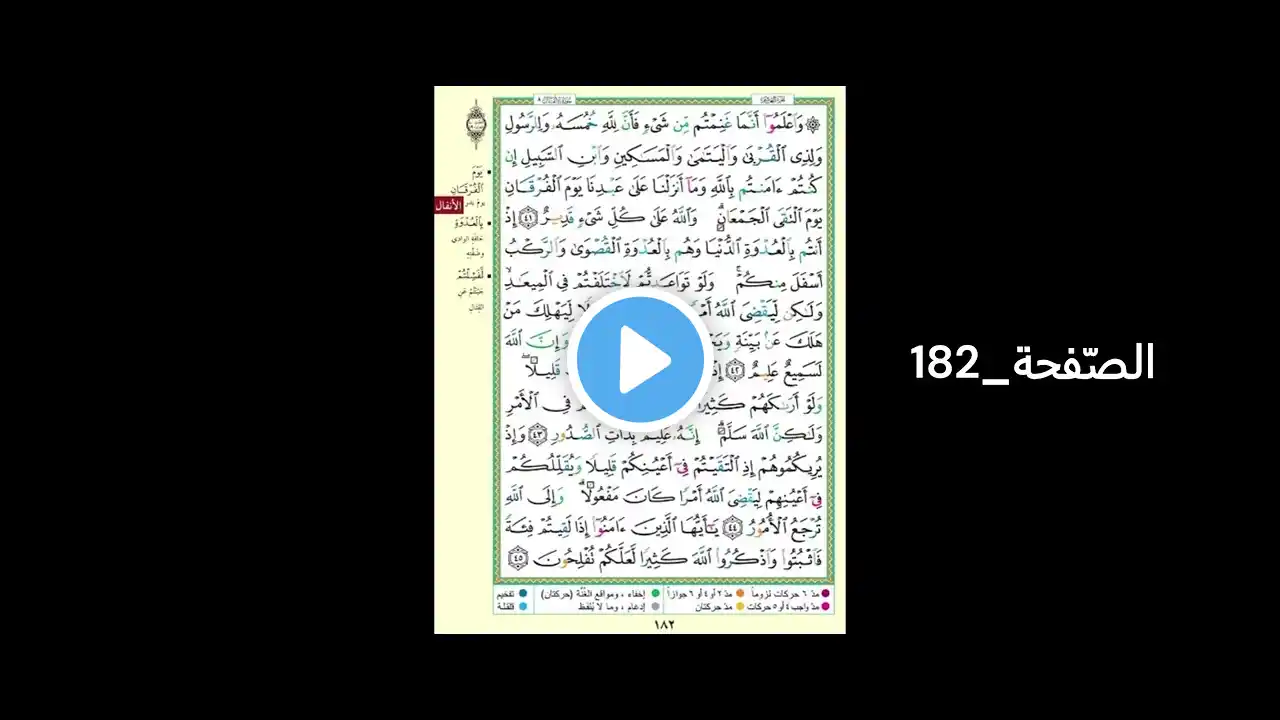 وَٱعْلَمُوٓا۟ أَنَّمَا غَنِمْتُم مِّن شَىْءٍ فَأَنَّ لِلَّهِ خُمُسَهُۥ وَلِلرَّسُولِ
وَلِذِى ٱلْقُرْبَىٰ وَٱلْيَتَٰمَىٰ وَٱلْمَسَٰكِينِ وَٱبْنِ ٱلسَّبِيلِ إِن
كُنتُمْ ءَامَنتُم بِٱللَّهِ وَمَآ أَنزَلْنَا عَلَىٰ عَبْدِنَا يَوْمَ ٱلْفُرْقَانِ
يَوْمَ ٱلْتَقَى ٱلْجَمْعَانِ ۗ وَٱللَّهُ عَلَىٰ كُلِّ شَىْءٍ قَدِيرٌ ٤١ إِذْ
أَنتُم بِٱلْعُدْوَةِ ٱلدُّنْيَا وَهُم بِٱلْعُدْوَةِ ٱلْقُصْوَىٰ وَٱلرَّكْبُ
أَسْفَلَ مِنكُمْ ۚ وَلَوْ تَوَاعَدتُّمْ لَٱخْتَلَفْتُمْ فِى ٱلْمِيعَٰدِ ۙ
وَلَٰكِن لِّيَقْضِىَ ٱللَّهُ لِّيَهْلِكَ مَنْ
هَلَكَ عَنۢ بَيِّنَةٍ وَإِنَّ ٱللَّهَ
لَسَمِيعٌ عَلِيمٌ ٤٢ قَلِيلًا ۖ
وَلَوْ أَرَىٰكَهُمْ كَثِيرًا فِى ٱلْأَمْرِ
وَلَٰكِنَّ ٱللَّهَ سَلَّمَ ۗ إِنَّهُۥ عَلِيمٌۢ بِذَاتِ ٱلصُّدُورِ ٤٣ وَإِذْ
يُرِيكُمُوهُمْ إِذِ ٱلْتَقَيْتُمْ فِىٓ أَعْيُنِكُمْ قَلِيلًا وَيُقَلِّلُكُمْ
فِىٓ أَعْيُنِهِمْ لِيَقْضِىَ ٱللَّهُ أَمْرًا كَانَ مَفْعُولًا ۗ وَإِلَى ٱللَّهِ
تُرْجَعُ ٱلْأُمُورُ ٤٤ يَٰٓأَيُّهَا ٱلَّذِينَ ءَامَنُوٓا۟ إِذَا لَقِيتُمْ فِئَةً
فَٱثْبُتُوا۟ وَٱذْكُرُوا۟ ٱللَّهَ كَثِيرًا لَّعَلَّكُمْ تُفْلِحُونَ ٤٥
يَوْمَ
ٱلْفُرْقَانِ
يوم بدر
الأنفال
بِٱلْعُدْوَةِ
حافة الوادي
وضفّته
لَفَشِلْتُمْ
جَبُنتم عن
القتال
مدّ ٦ حركات لزوماً مدّ ٢ أو ٤ أو ٦ جوازاً إخفاء ، ومواقع الغُنَّة (حركتان) تفخيم
مدّ واجب ٤ أو ٥ حركات مدّ حركتان إدغام ، وما لا يُلفظ قلقلة
١٨٢
الصّفحة_182